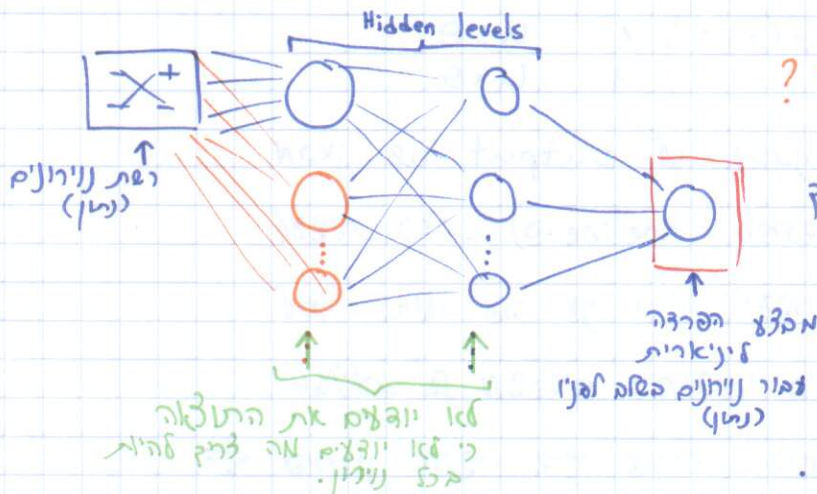 Hidden levels
?
רשת נוירונים
(נתון)
מבצע הפרדה
ליניארית
עבור נוירונים בשלב לפניו
(נתון)
לא יודעים את התוצאה
כי לא יודעים מה צריך להיות
בכל נוירון.